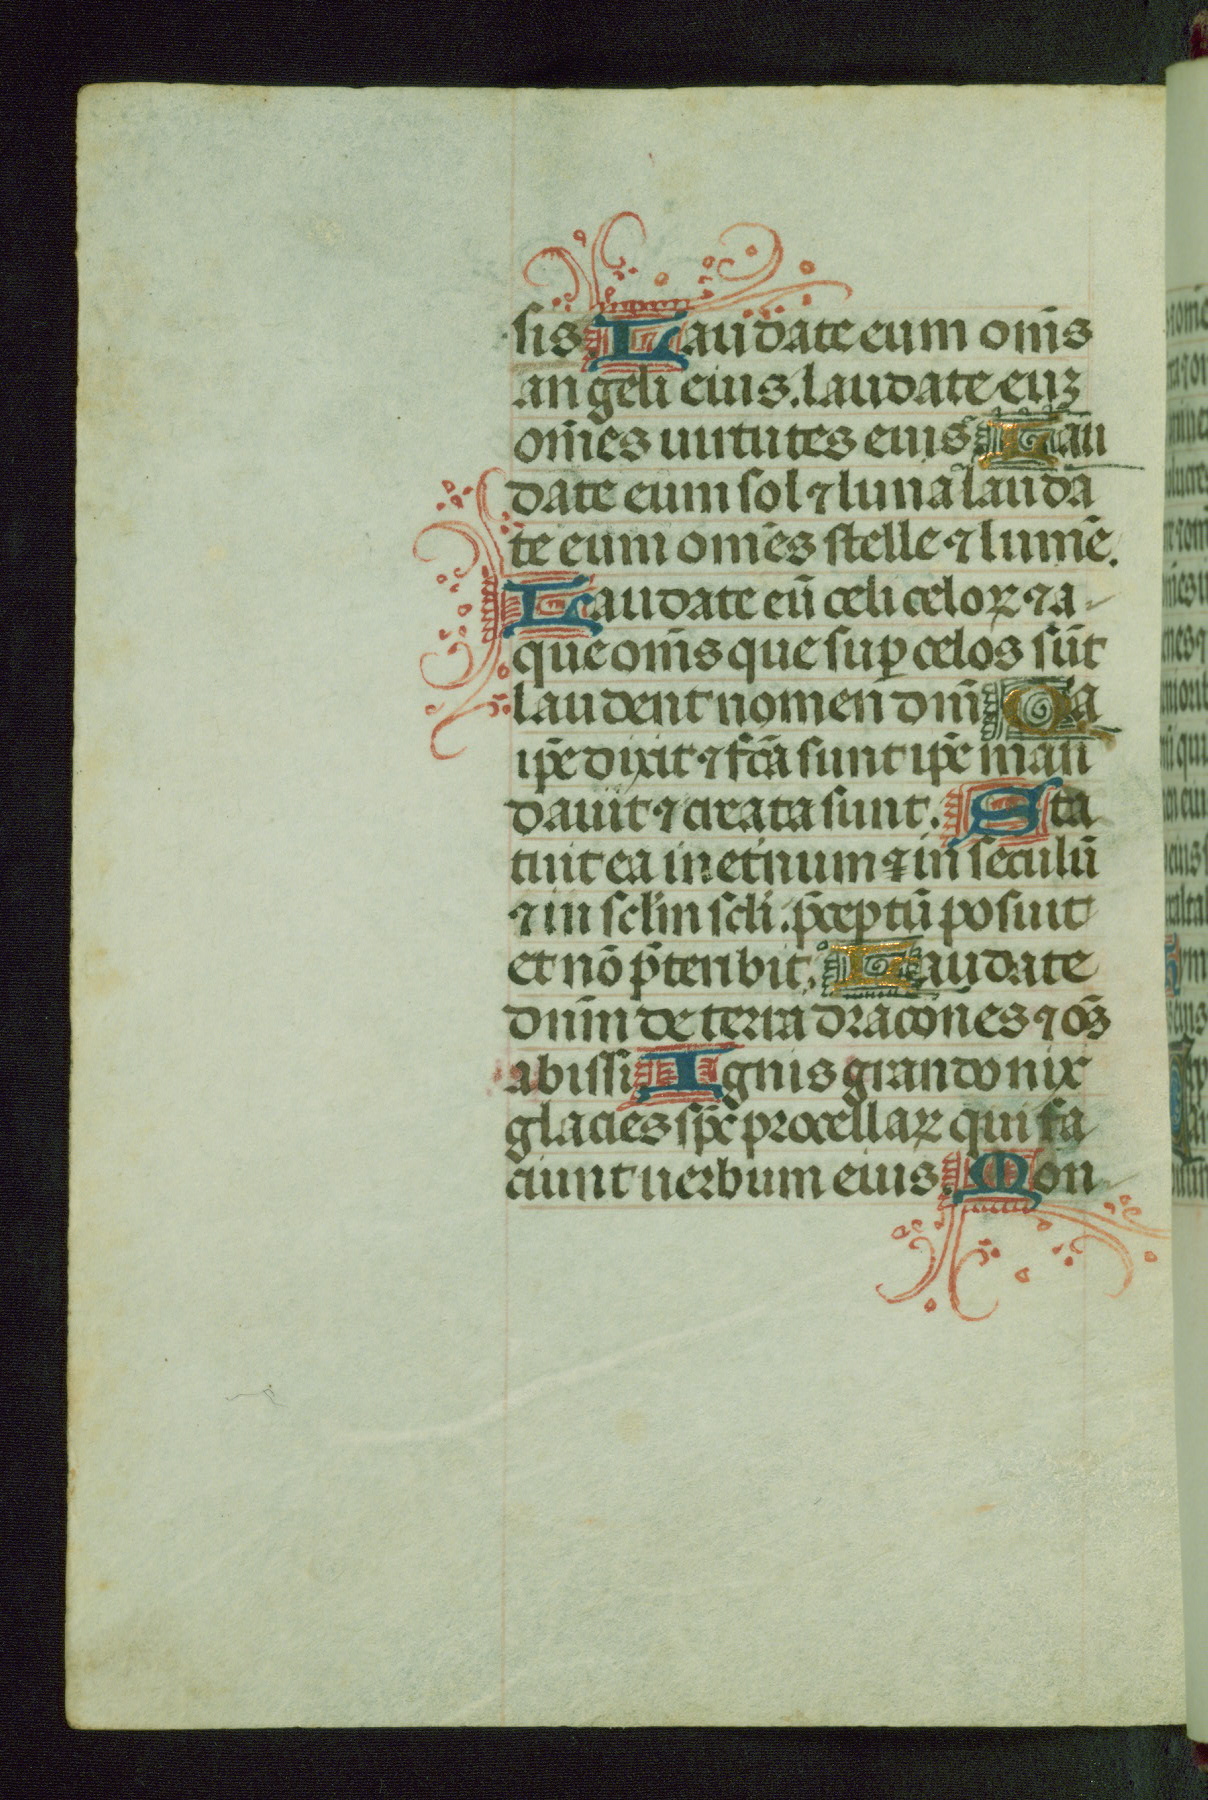 sis. Laudate eum om̄s
angeli eius. laudate euꝫ
om̄es uirtutes eius Lau
date eum sol ⁊ luna lauda
te eum om̄es stelle ⁊ lumē.
Laudate eū celi celoꝝ ⁊ a-
que om̄s que suꝑ celos sūt
laudent nomen dn̄i Qa
ip̄e dixit ⁊ fc̄a sunt ip̄e man
dauit ⁊ creata sunt. Sta
tuit ea in et̄nuum ⁊ in seculū
⁊ in sclm̄ scli. p̄ceptū posuit
et nō p̄teribit. Laudate
dn̄m de terra dracones ⁊ oē̄s
abissi. Ignis grando nix
glacies sp̄c procellaꝝ qui fa
ciunt uerbum eius. Mon